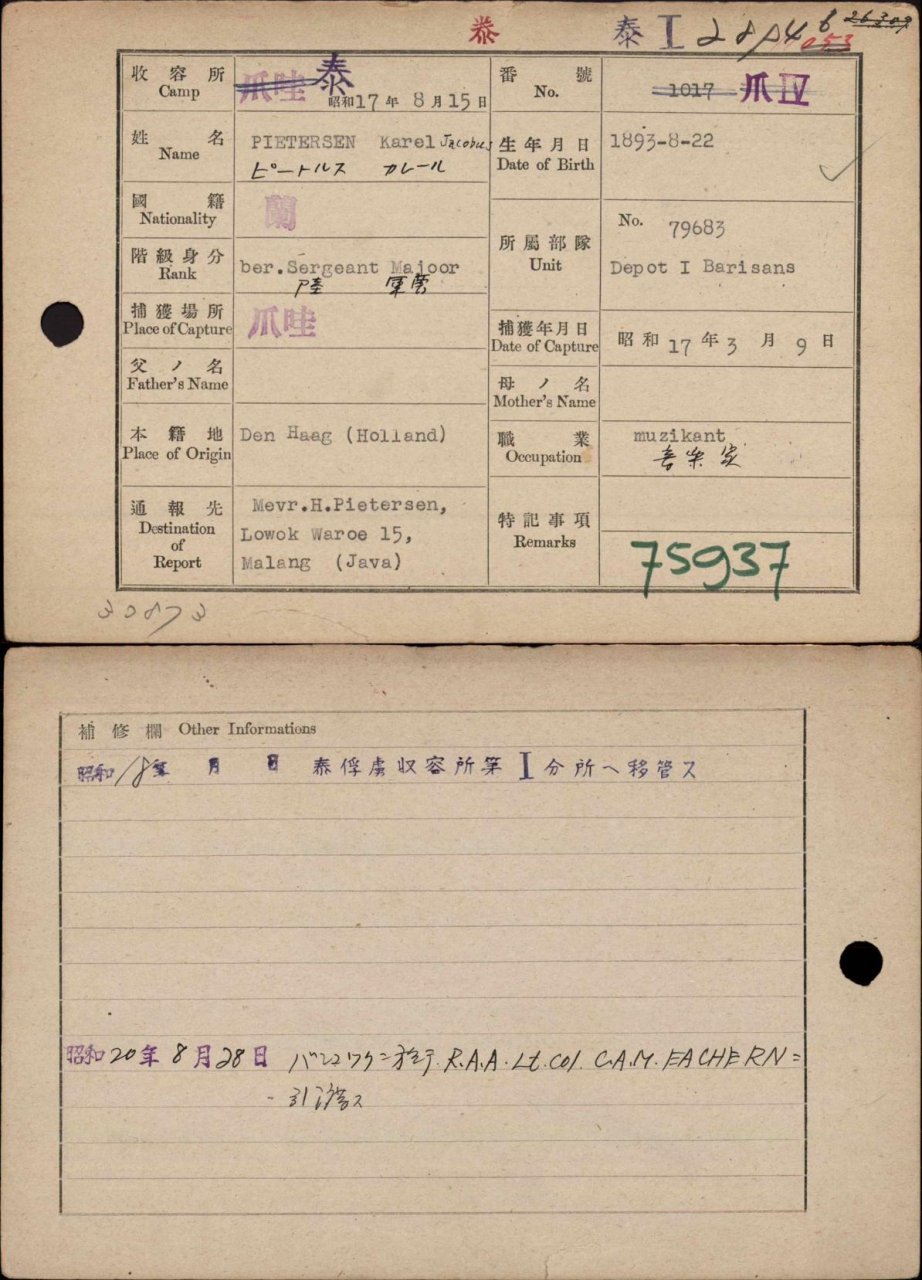 泰 泰 I
26309
053
收容所 Camp 爪哇 泰 昭和17年8月15日
番號 No. 1017 爪IV
姓名 Name PIETERSEN Karel Jacobus
ピートルス カレール
生年月日 Date of Birth 1893-8-22
國籍 Nationality 蘭
階級身分 Rank ber.Sergeant Majoor
陸 軍曹
所屬部隊 Unit No. 79683
Depot I Barisans
捕獲場所 Place of Capture 爪哇
捕獲年月日 Date of Capture 昭和17年3月9日
父ノ名 Father's Name
母ノ名 Mother's Name
本籍地 Place of Origin Den Haag (Holland)
職業 Occupation muzikant
音楽家
通報先 Destination of Report Mevr.H.Pietersen,
Lowok Waroe 15,
Malang (Java)
特記事項 Remarks
75937
30873
補修欄 Other Informations
昭和18年 月 日 泰俘虜収容所第I分所ヘ移管ス
昭和20年8月28日 R.A.A. Lt. Col. C.A.M. EACHERN=
引渡ス